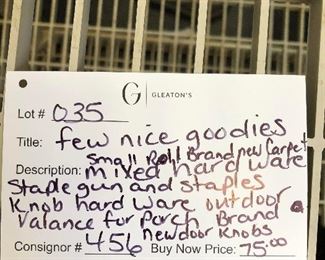 G | GLEATON'S
Lot # 035
Title: few nice goodies
Small Roll Brand new Carpet
Description: mixed hard ware
Staple gun and staples
Knob hard ware outdoor
Valance for Porch Brand
new door knobs
Consignor # 456 Buy Now Price: 75.00